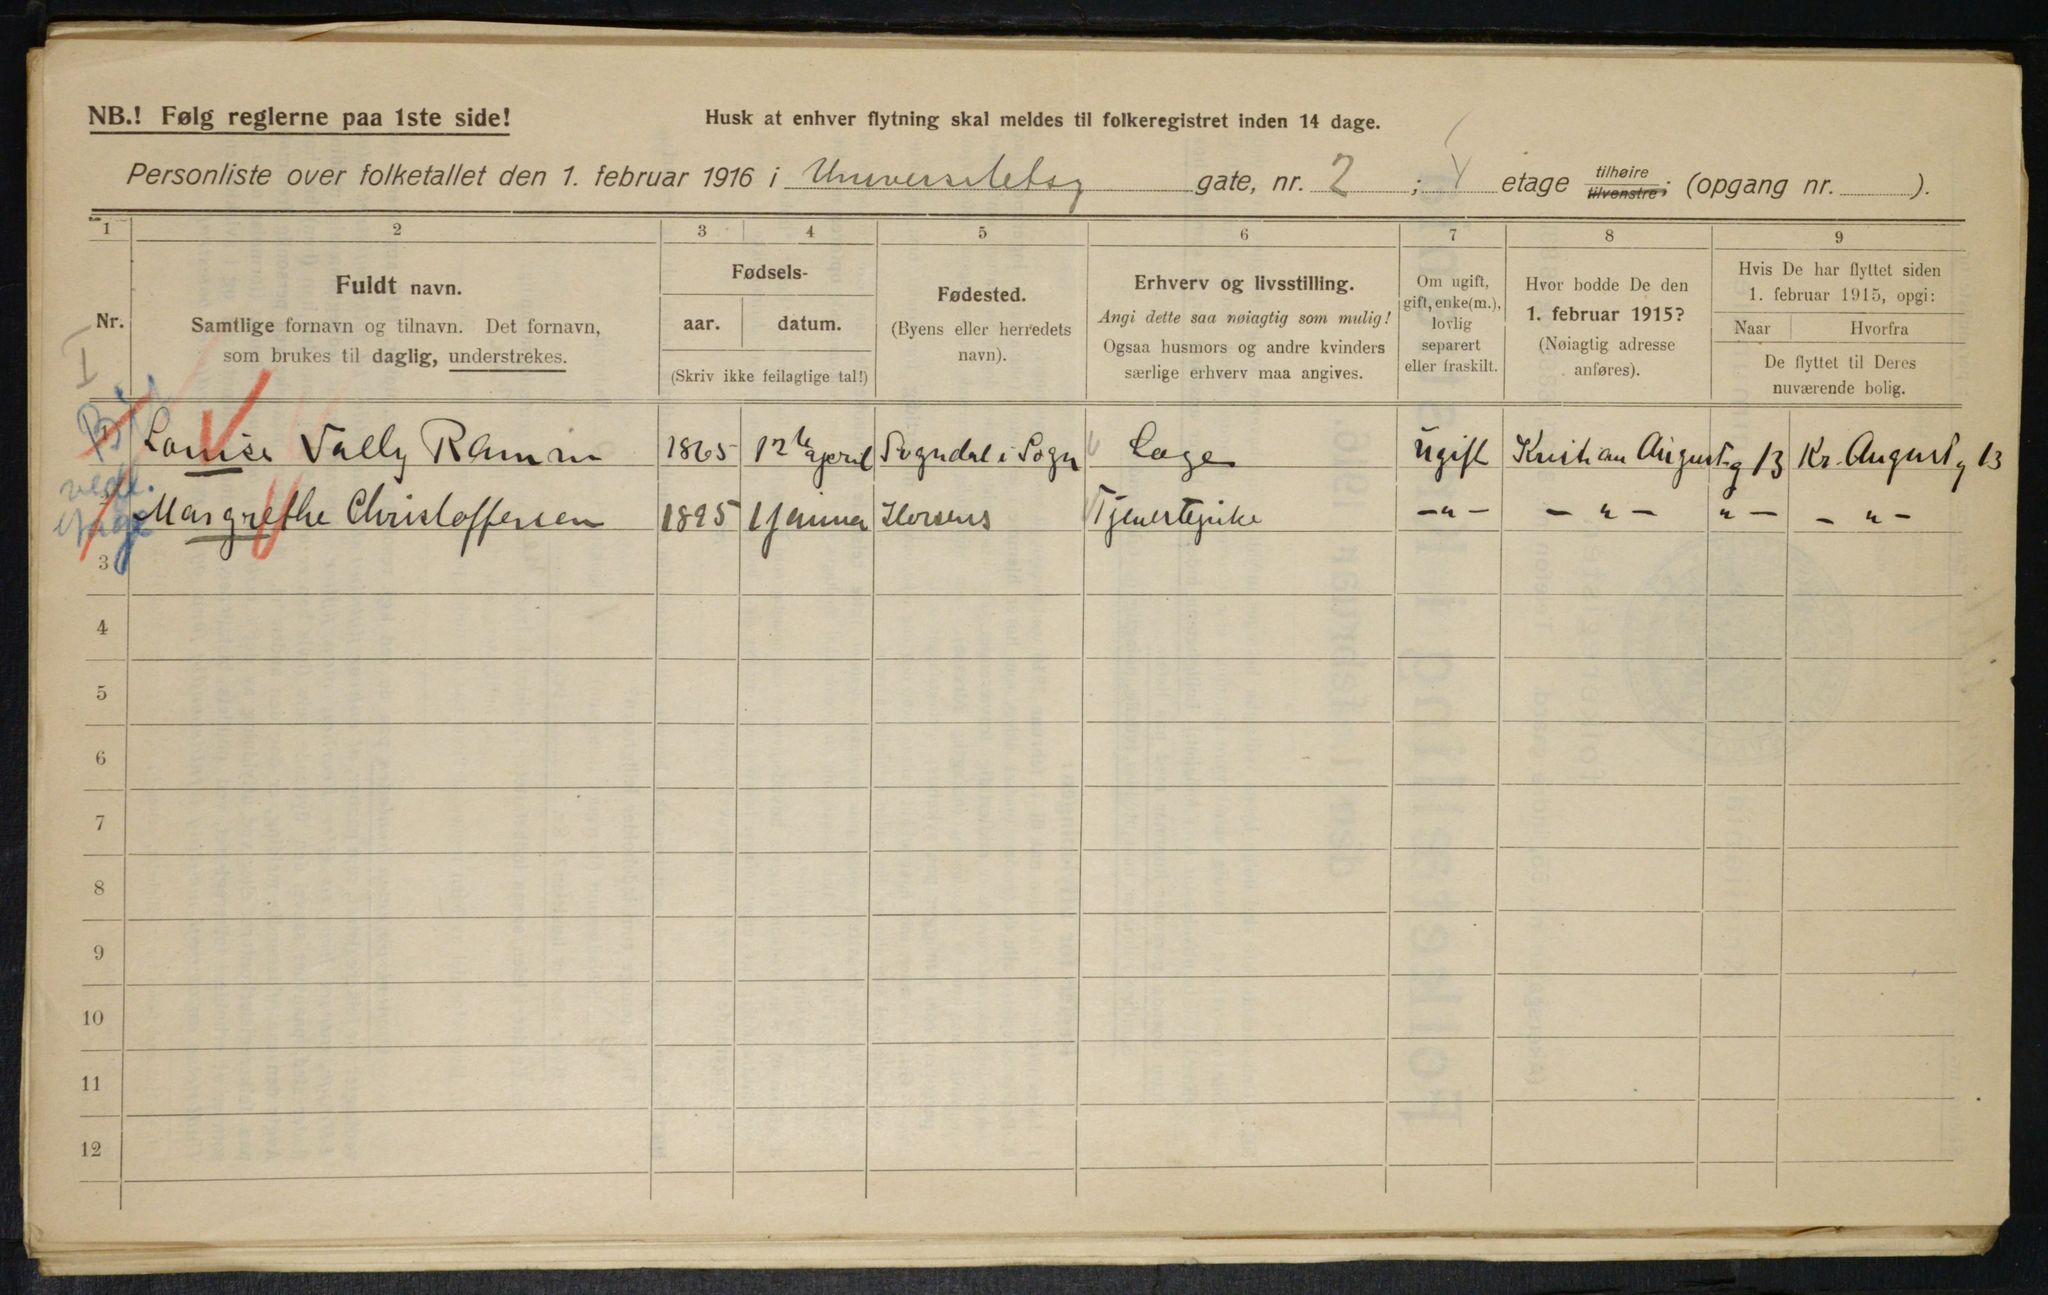 NB.! Følg reglerne paa 1ste side!
Husk at enhver flytning skal meldes til folkeregistret inden 14 dage.
Personliste over folketallet den 1. februar 1916 i Universitetsg gate, nr. 2 ; etage tilhøire tilvenstre; (opgang nr. ).
1 2 3 4 5 6 7 8 9
Nr.
Fuldt navn.
Samtlige fornavn og tilnavn. Det fornavn,
som brukes til daglig, understrekes.
Fødsels-
aar. datum.
(Skriv ikke feilagtige tal!)
Fødested.
(Byens eller herredets
navn).
Erhverv og livsstilling.
Angi dette saa nøiagtig som mulig!
Ogsaa husmors og andre kvinders
særlige erhverv maa angives.
Om ugift,
gift, enke(m.),
lovlig
separert
eller fraskilt.
Hvor bodde De den
1. februar 1915?
(Nøiagtig adresse
anføres).
Hvis De har flyttet siden
1. februar 1915, opgi:
Naar Hvorfra
De flyttet til Deres
nuværende bolig.
Louise Vally Ramm 1865 12te april Sogndal i Sogn Læge ugift Kristian Augustg 13 Kr. Augustg 13
Margrethe Christoffersen 1895 1 januar Horsens Tjenestepike —"— — " — " — — " —
3
4
5
6
7
8
9
10
11
12